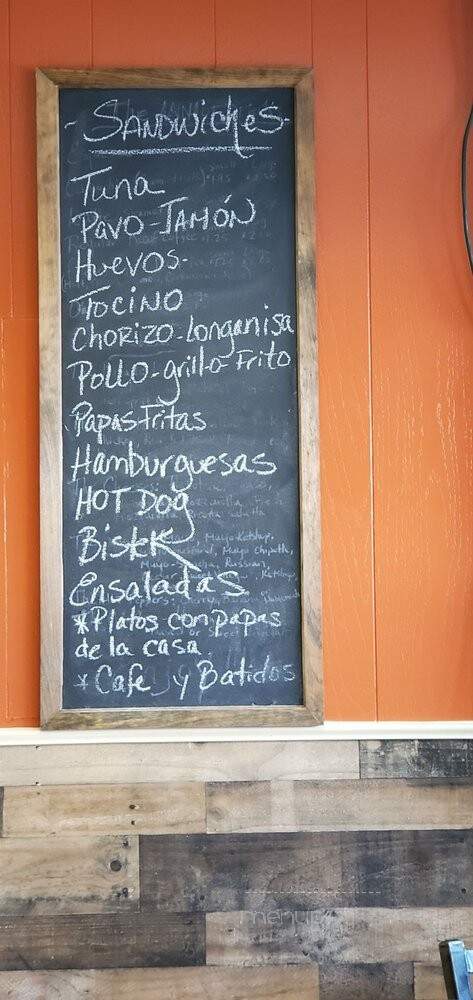 - SANDWICHES -
Tuna
PAVO-JAMÓN
Huevos-
TOCINO
CHORIZO-Longanisa
POLLO-grill-o-Frito
Papas Fritas
Hamburguesas
HOT DOG
Ensaladas
*Platos con papas
de la casa
*Cafe y Batidos